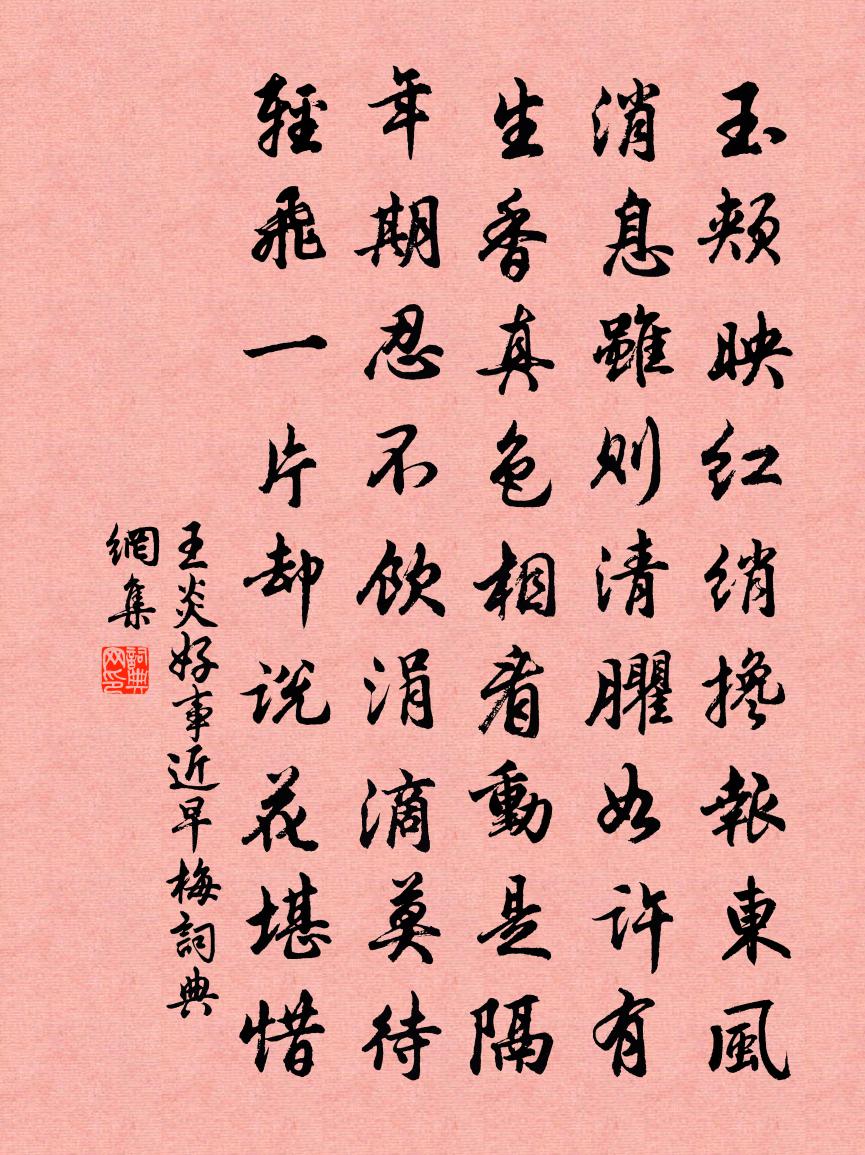 玉頰映紅綃攙報東風
消息雖則清臞如許有
生香真色相看動是隔
年期忍不飲涓滴莫待
輕飛一片却說花堪惜
王炎好事近早梅詞典
網集
詞典網印